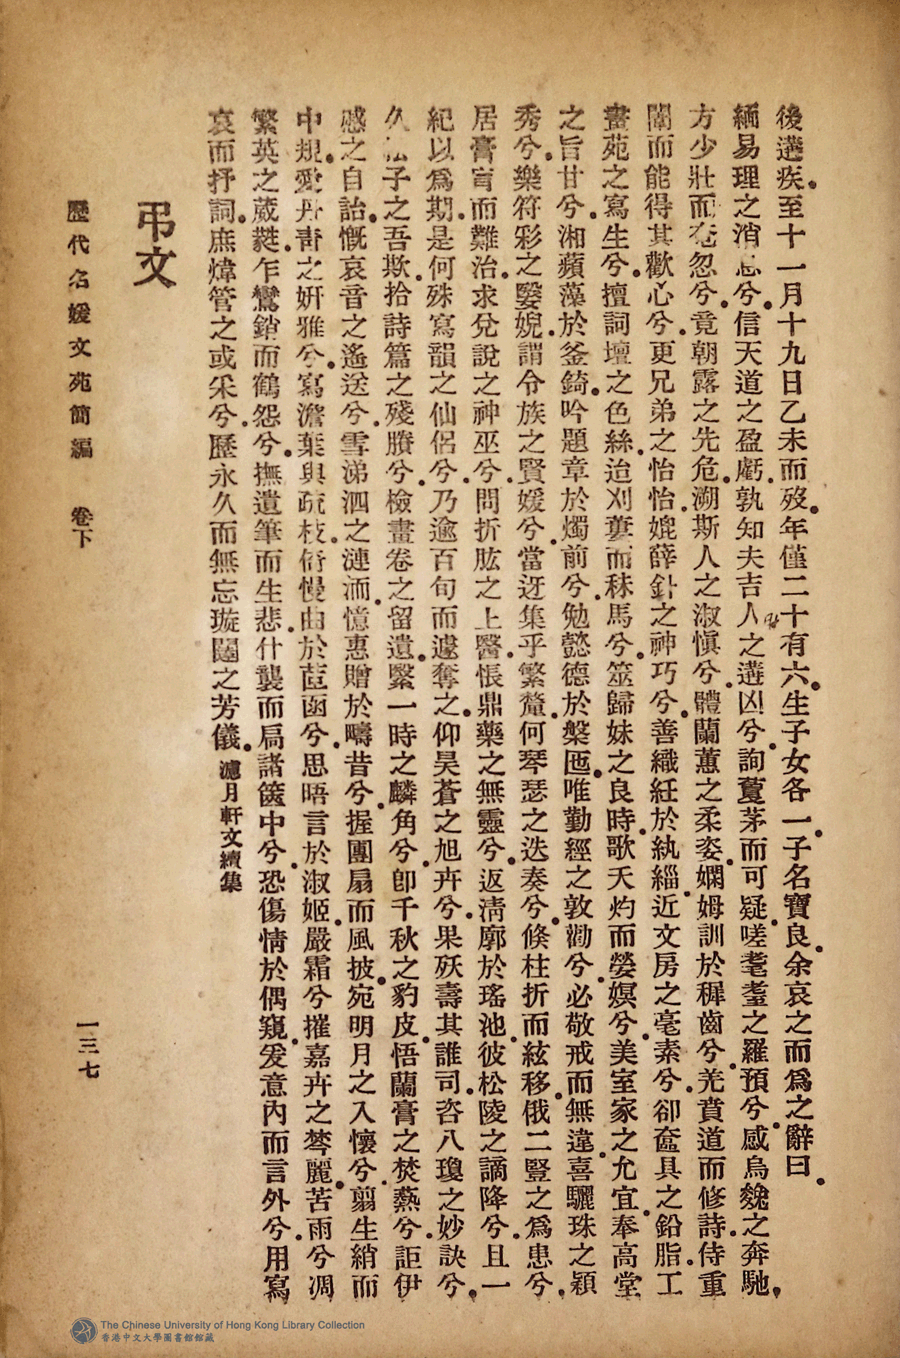 後遘疾。至十一月十九日乙未而歿。年僅二十有六。生子女各一。子名寶良。余哀之而爲之辭曰。
緬易理之消息兮。信天道之盈虧。孰知夫吉人之遘凶兮。詢藑茅而可疑。嗟耄耋之羅預兮。感烏兔之奔馳。
方少壯而奄忽兮。竟朝露之先危。溯斯人之淑愼兮。體蘭蕙之柔姿。嫻姆訓於穉齒兮。羌賁道而修詩。侍重
闈而能得其歡心兮。更兄弟之怡怡。媲薛針之神巧兮。善織紝於紈緇。近文房之毫素兮。卻奩具之鉛脂。工
畫苑之寫生兮。擅詞壇之色絲。迨刈蔞而秣馬兮。筮歸妹之良時。歌夭灼而嫈嫇兮。美室家之允宜。奉高堂
之旨甘兮。湘蘋藻於釜錡。吟題章於燭前兮。勉懿德於槃匜。唯勤經之敦勸兮。必敬戒而無違。喜驪珠之穎
秀兮。樂符彩之嫛婗。謂令族之賢媛兮。當迓集乎繁釐。何琴瑟之迭奏兮。倏柱折而絃移。俄二豎之爲患兮。
居膏肓而難治。求兌說之神巫兮。問折肱之上醫。悵鼎藥之無靈兮。返淸廓於瑤池。彼松陵之謫降兮。且一
紀以爲期。是何殊寫韻之仙侶兮。乃逾百旬而遽奪之。仰昊蒼之旭卉兮。果殀壽其誰司。咨八瓊之妙訣兮。
久 子之吾欺。拾詩篇之殘賸兮。檢畫卷之留遺。繄一時之麟角兮。卽千秋之豹皮。悟蘭膏之焚爇兮。詎伊
慼之自詒。慨哀音之遙送兮。雪涕泗之漣洏。憶惠贈於疇昔兮。握團扇而風披。宛明月之入懷兮。翦生綃而
中規。愛丹靑之姸雅兮。寫澹葉與疏枝。 慢曲於 函兮。思晤言於淑姬。嚴霜兮摧嘉卉之棽麗。苦雨兮凋
繁英之葳蕤。乍鸞鎩而鶴怨兮。撫遺筆而生悲。什襲而局諸篋中兮。恐傷情於偶窺。爰意內而言外兮。用寫
哀而抒詞。庶煒管之或采兮。歷永久而無忘璇閨之芳儀。濾月軒文續集
弔文
歷代名媛文苑簡編 卷下 一三七
The Chinese University of Hong Kong Library Collection
香港中文大學圖書館館藏